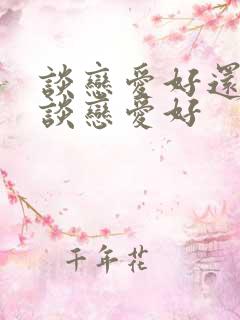 談戀愛好還
談戀愛好
千年花